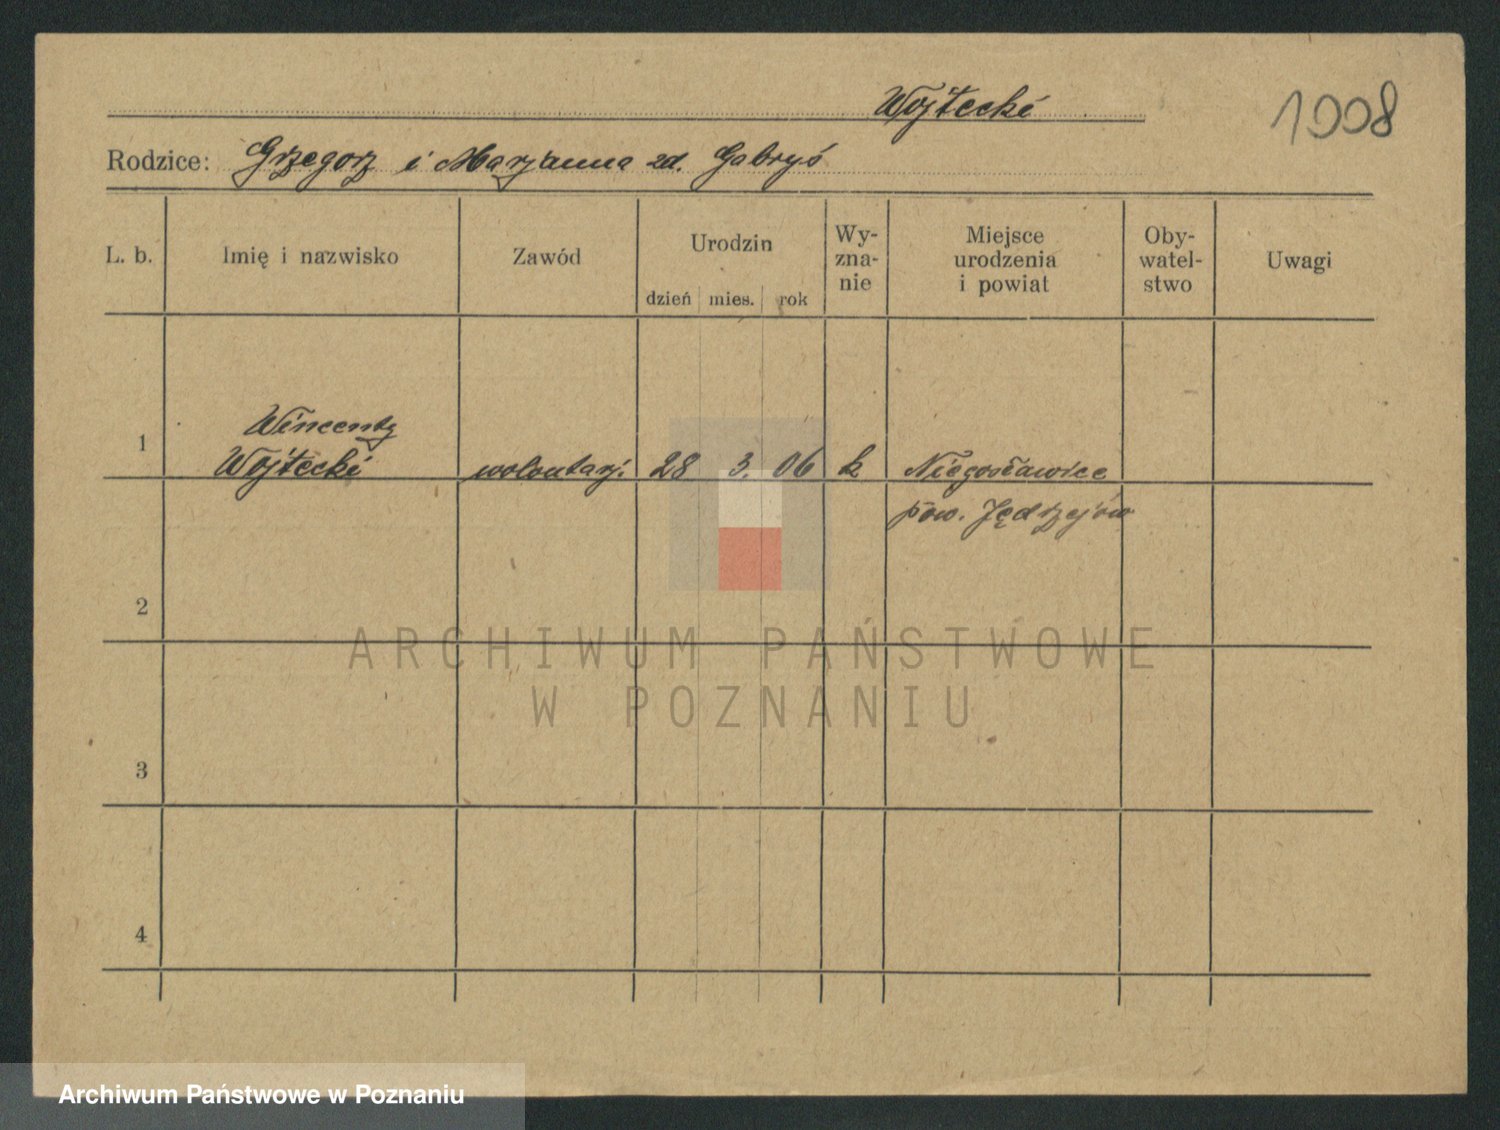 Wojtecki
1008
Rodzice: Grzegorz i Marjanna zd. Gabryś
L. b.
Imię i nazwisko
Zawód
Urodzin
dzień mies. rok
Wy-
zna-
nie
Miejsce
urodzenia
i powiat
Oby-
watel-
stwo
Uwagi
1
Wincenty
Wojtecki
wolontarj.
28 3. 06
k
Niegosławice
pow. Jędrzejów
2
3
4
ARCHIWUM PAŃSTWOWE
W POZNANIU
Archiwum Państwowe w Poznaniu